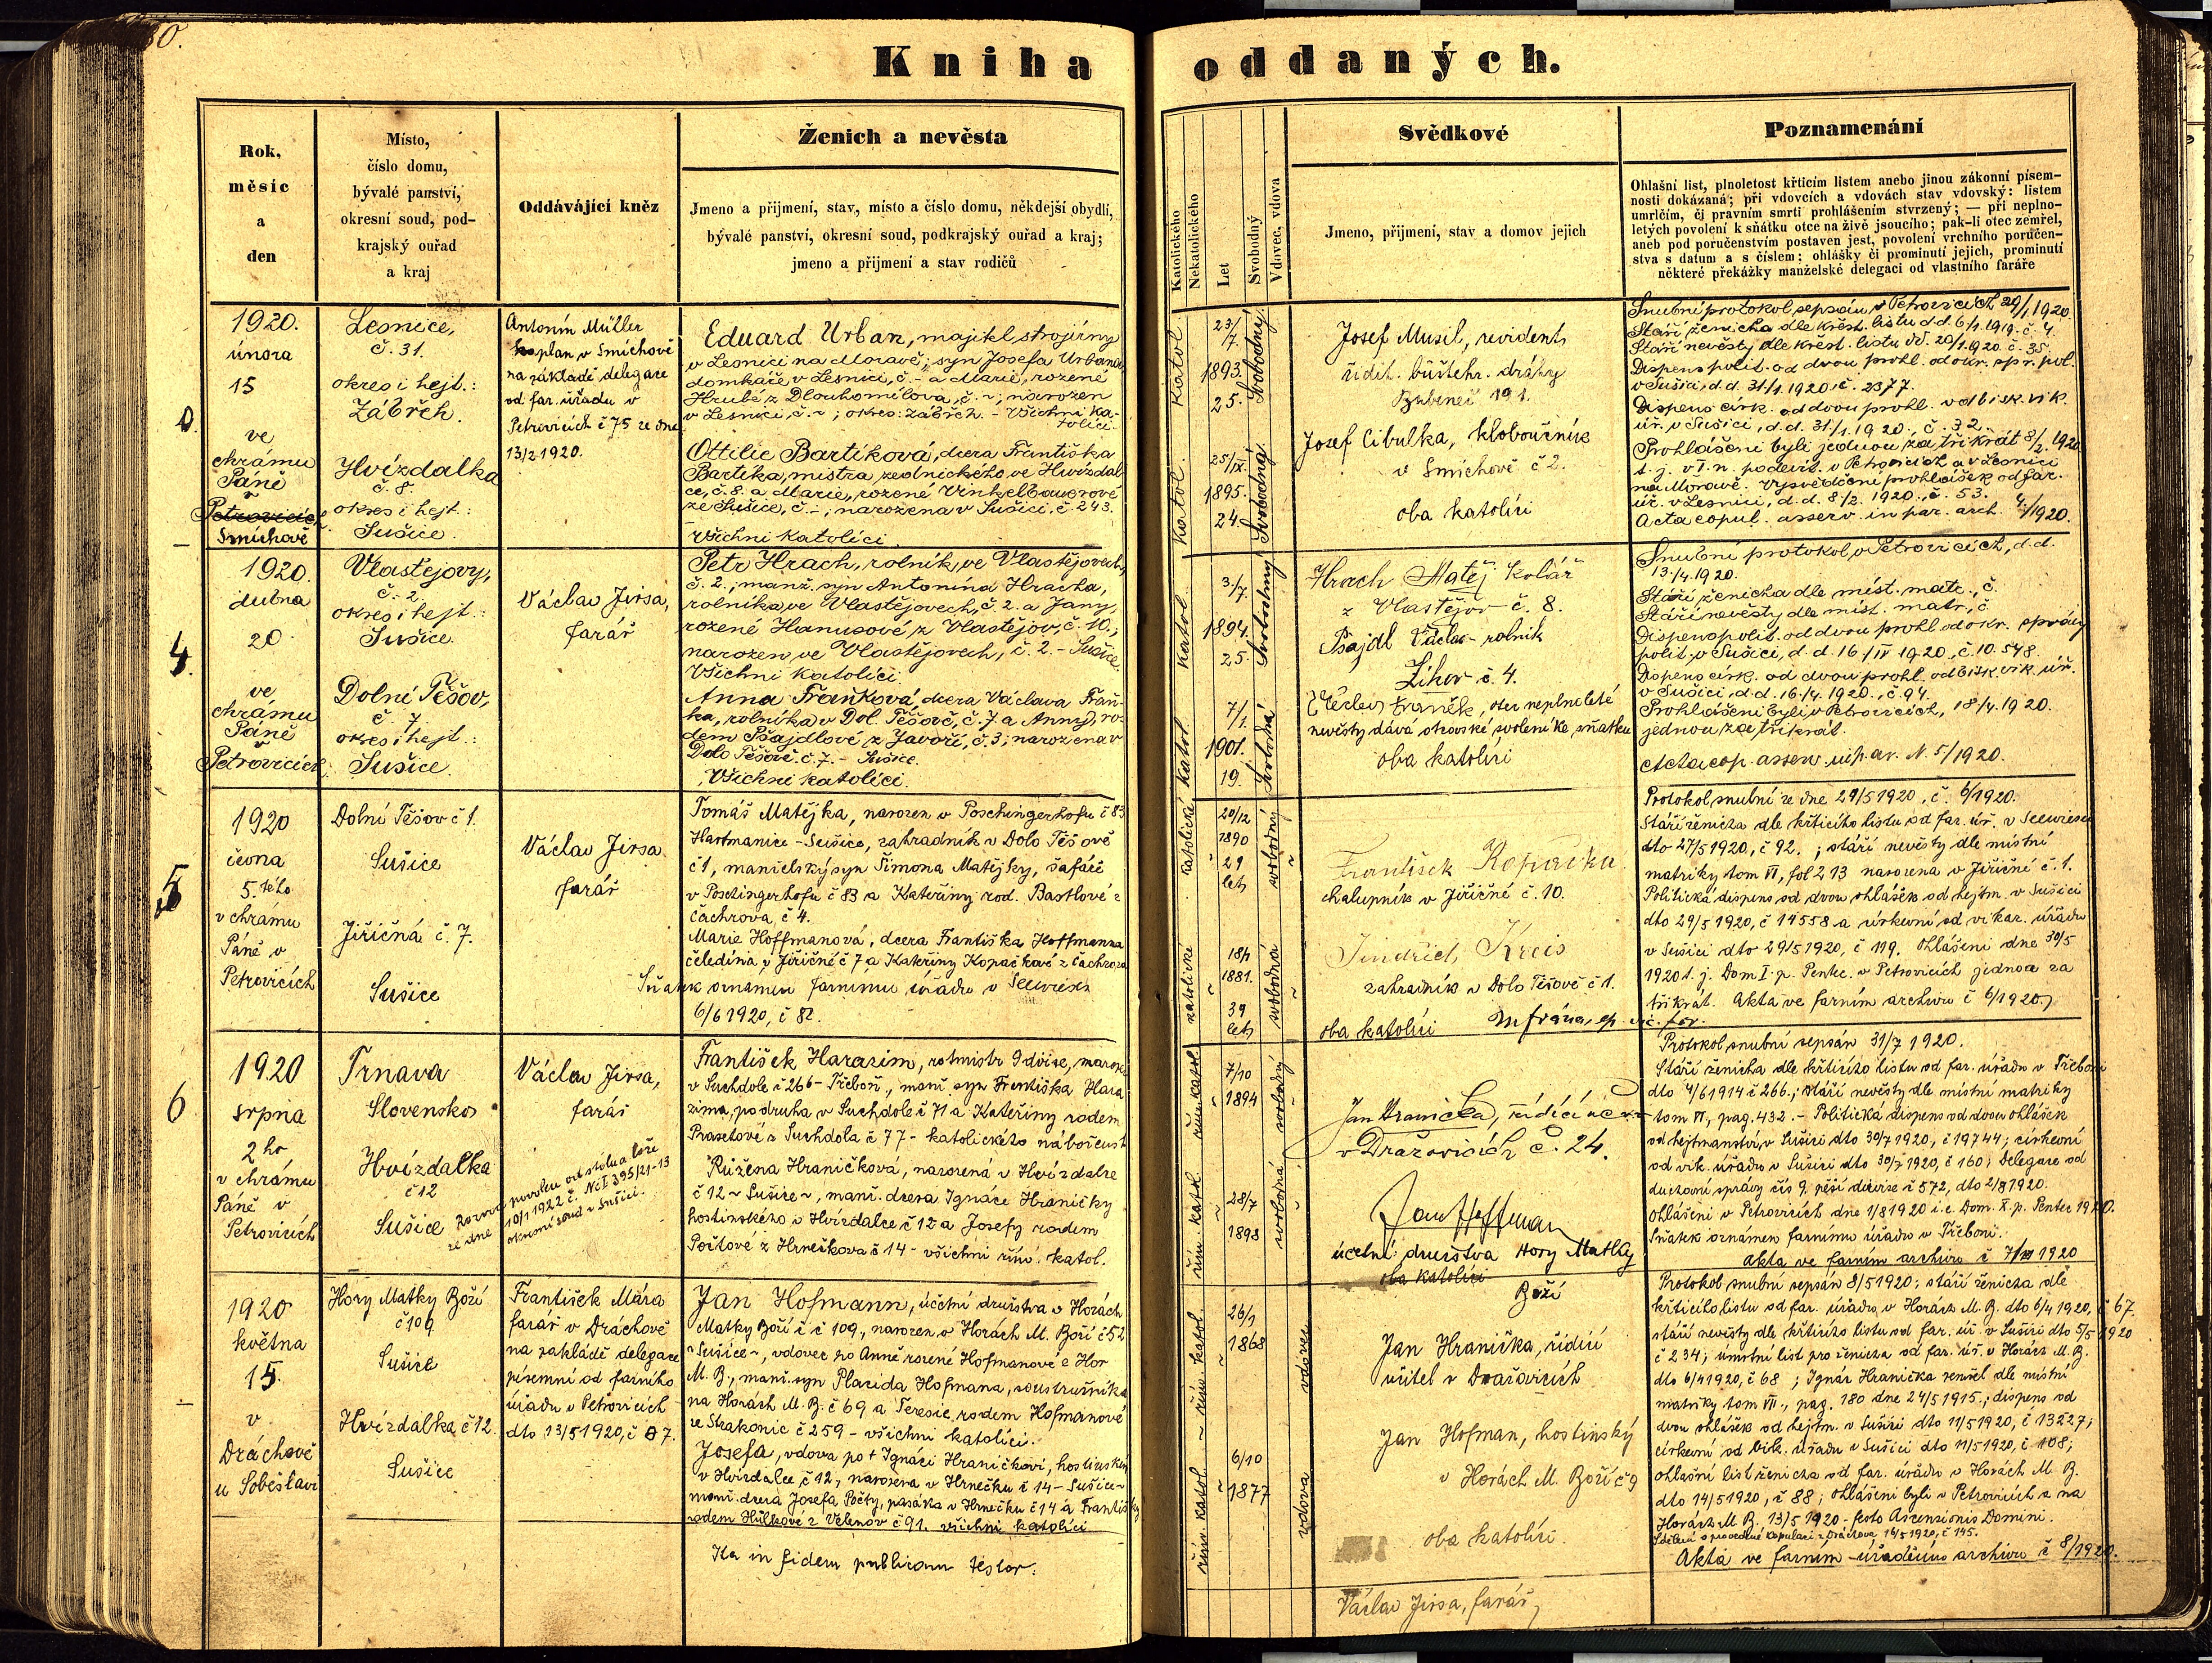 30.
Kniha oddaných.
Rok,
měsíc
a
den
Místo,
číslo domu,
bývalé panství,
okresní soud, pod-
krajský ouřad
a kraj
Oddávající kněz
Ženich a nevěsta
Jmeno a přijmení, stav, místo a číslo domu, někdejší obydlí,
bývalé panství, okresní soud, podkrajský ouřad a kraj;
jmeno a přijmení a stav rodičů
Katolického
Nekatolického
Let
Svobodný
Vdovec, vdova
Svědkové
Jmeno, přijmení, stav a domov jejich
Poznamenání
Ohlašní list, plnoletost křticím listem anebo jinou zákonní písem-
nosti dokázaná; při vdovcích a vdovách stav vdovský: listem
umrlčím, čj pravním smrti prohlášením stvrzený; — při neplno-
letých povolení k sňátku otce na živě jsoucího; pak-li otec zemřel,
aneb pod poručenstvím postaven jest, povolení vrchního poručen-
stva s datum a s číslem; ohlášky či prominutí jejich, prominutí
některé překážky manželské delegaci od vlastního faráře
0.
1920.
února
15
ve
chrámu
Páně
v
Petrovicích
Smíchově
Lesnice,
č. 31.
okres i hejt.:
Zábřeh.
Hvízdalka
č. 8.
okres i hejt.:
Sušice.
Antonín Müller
kaplan v Smíchově
na základě delegace
od far. úřadu v
Petrovicích č 75 ze dne
13/2 1920.
Eduard Urban, majitel strojírny
v Lesnici na Moravě; syn Josefa Urbana,
domkáře v Lesnici, č. - a Marie, rozené
Hrubé z Dlouhomilova, č. -; narozen
v Lesnici, č. -; okres: Zábřeh. - Všichni ka-
tolíci.
Ottilie Bartíková, dcera Františka
Bartíka, mistra zednického ve Hvízdal-
ce, č. 8. a Marie, rozené Vinkelbauerové
ze Sušice, č. -; narozena v Sušici, č. 243.
Všichni katolíci.
Katol.
23/7.
1893.
25.
Svobodný
Katol.
25/IX.
1895.
24.
Svobodná
Josef Musil, revident
ředit. buštehr. dráhy
Bubeneč 191.
Josef Cibulka, kloboučník
v Smíchově č 2.
oba katolíci
Snubní protokol sepsán v Petrovicích 29/1 1920.
Stáří ženicha dle křest. listu d.d. 6/1. 1919. č. 4.
Stáří nevěsty dle křest. listu dd. 20/1. 1920. č. 35.
Dispens polit. od dvou prohl. od okr. spr. pol.
v Sušici, d.d. 31/1. 1920. č. 2377.
Dispens církv. od dvou prohl. od bisk. vik.
úř. v Sušici, d.d. 31/1. 1920., č. 32.
Prohlášeni byli jednou za třikrát 8/2. 1920
úř. v Lesnici, d.d. 8/2. 1920., č. 53.
Acta copul. asserv. in par. arch. 4/1920.
4.
1920.
dubna
20.
ve
chrámu
Páně
v
Petrovicích
Vlastějovy,
č. 2.
okres i hejt.:
Sušice.
Dolní Těšov,
č. 7.
okres i hejt.:
Sušice.
Václav Jirsa,
farář
Petr Hrach, rolník ve Vlastějovech,
č. 2.; manž. syn Antonína Hracha,
rolníka ve Vlastějovech, č. 2. a Jany,
rozené Hanusové z Vlastějov, č. 10.;
narozen ve Vlastějovech, č. 2. - Sušice.
Všichni katolíci.
Anna Fraňková, dcera Václava Fraň-
ka, rolníka v Dol. Těšově, č. 7. a Anny, ro-
dem Pšajdlové z Javoří, č. 3; narozena v
Dolo Těšově č. 7. - Sušice.
Všichni katolíci.
Katol.
3./7.
1894.
25.
Svobodný
Katol.
7/1.
1901.
19.
Svobodná
Hrach Matěj Kolář
z Vlastějov č. 8.
Pšajdl Václav - rolník
Žíkov č 4.
Václav Franěk, otec neplnoleté
nevěsty dává otcovské svolení ke sňatku
oba katolíci
Snubní protokol v Petrovicích, d.d.
13./4. 1920.
Stáří ženicha dle míst. matr., č.
Stáří nevěsty dle míst. matr., č.
Dispens polit. od dvou prohl. od okr. správy
polit. v Sušici, d.d. 16/IV 1920., č. 10.548.
Dispens církv. od dvou prohl. od bisk. vik. úř.
v Sušici, d.d. 16./4. 1920., č. 94.
Prohlášeni byli v Petrovicích, 18/4. 1920.
jednou za třikrát.
Acta cop. asserv. in p. ar. N. 5/1920.
5
1920
června
5. ého
v chrámu
Páně v
Petrovicích
Dolní Těšov č 1.
Sušice
Jiřičná č. 7.
Sušice
Václav Jirsa
farář
Tomáš Matějka, narozen v Poschingerhofu č 83
Hartmanice - Sušice, zahradník v Dolo Těšově
č 1, manželský syn Šimona Matějky, šafáře
v Poschingerhofu č 83 a Kateřiny rod. Bastlové z
Čachrova, č 4.
Marie Hoffmanová, dcera Františka Hoffmanna
čeledína v Jiřičné č 7 a Kateřiny Kopačkové z Čachrova
Sňatek oznámen farnímu úřadu v Seewiesen
6/6 1920, č 82.
katolické
20/12
1890
29
let
svobodný
katolické
1881.
39
let
svobodná
František Kopačka
chalupník v Jiřičné č. 10.
Jindřich Kreis
zahradník v Dolo Těšově č 1.
oba katolíci
Protokol snubní ze dne 29/5 1920, č. 6/1920.
Stáří ženicha dle křticího listu od far. úř. v Seewiesen
dto 27/5 1920, č 92.; stáří nevěsty dle místní
matriky tom VI, fol 213 narozena v Jiřičné č. 1.
Politická dispens od dvou ohlášek od hejtm. v Sušici
dto 29/5 1920, č 14558 a církevní od vikar. úřadu
v Sušici dto 29/5 1920, č 119. Ohlášeni dne 30/5
1920 t. j. Dom I. p. Pentec. v Petrovicích jednou za
třikrát. Akta ve farním archivu č 6/1920.
6
1920
srpna
2ho
v chrámu
Páně v
Petrovicích
Trnava
Slovensko
Hvízdalka
č 12
Sušice
Václav Jirsa,
farář
Rozvod povolen od stolu a lože
ze dne 10/1 1922 č. Nc I 395/21-13
okresní soud v Sušici.
František Harazim, rotmistr 9 divise, narozen
v Suchdole č 266 - Třeboň, manž. syn Františka Hara-
zima, podruha v Suchdole č 71 a Kateřiny rodem
Prasetové z Suchdola č 77 - katolického nábožens.
Růžena Hraničková, narozená v Hvízdalce
č 12 ~ Sušice ~, manž. dcera Ignáce Hraničky
hostinského v Hvízdalce č 12 a Josefy rodem
Počtové z Hrnečkova č 14 - všichni řím. katol.
řím. katol.
7/10
1894
svobodný
řím. katol.
28/7
1898
svobodná
Jan Hranička, řídící uč.
v Dražovicích č. 24.
Jan Hoffman
účetní družstva Hory Matky
Boží
oba katolíci
Protokol snubní sepsán 31/7 1920.
Stáří ženicha dle křticího listu od far. úřadu v Třeboni
dto 4/6 1914 č 266.; stáří nevěsty dle místní matriky
tom VI, pag. 432. - Politická dispens od dvou ohlášek
od hejtmanství v Sušici dto 30/7 1920, č 19744; církevní
od vik. úřadu v Sušici dto 30/7 1920, č 160; Delegace od
duchovní správy čís 9. pěší divise č 572, dto 2/8 1920.
Ohlášeni v Petrovicích dne 1/8 1920 i.e. Dom. X. p. Pentec 1920.
Sňatek oznámen farnímu úřadu v Třeboni.
Akta ve farním archivu č 7/1920
1920
května
15.
v
Dráchově
u Soběslavi
Hory Matky Boží
č 109
Sušice
Hvízdalka č 12.
Sušice
František Mára
farář v Dráchově
na základě delegace
písemní od farního
úřadu v Petrovicích
dto 13/5 1920, č 87.
Jan Hofmann, účetní družstva v Horách
Matky Boží č 109, narozen v Horách M. Boží č 52
~ Sušice ~, vdovec po Anně rozené Hofmanové z Hor
M. B., manž. syn Placida Hofmana, soustružníka
na Horách M. B. č 69 a Teresie, rodem Hofmanové
ze Strakonic č 259 - všichni katolíci.
Josefa, vdova po + Ignáci Hraničkovi, hostinském
v Hvízdalce č 12, narozena v Hrnečku č 14 - Sušice ~
manž. dcera Josefa Počty, pasáka v Hrnečku č 14 a Františky
rodem Hůlkové z Velenov č 91. všichni katolíci
Ita in fidem publicam testor.
řím. katol.
26/1
1868
vdovec
řím. katol.
6/10
1877
vdova
Jan Hranička, řídící
učitel v Dražovicích
Jan Hofman, hostinský
v Horách M. Boží č 9
oba katolíci.
Václav Jirsa, farář
Protokol snubní sepsán 8/5 1920; stáří ženicha dle
křticího listu od far. úřadu v Horách M. B. dto 6/4 1920, č 67.
stáří nevěsty dle křticího listu od far. úř. v Sušici dto 5/5 1920
č 234; úmrtní list pro ženicha od far. úř. v Horách M. B.
dto 6/4 1920, č 68; Ignác Hranička zemřel dle místní
matriky tom VII., pag. 180 dne 24/5 1915.; dispens od
dvou ohlášek od hejtm. v Sušici dto 11/5 1920, č 13227;
církevní od bisk. úřadu v Sušici dto 11/5 1920, č 108;
ohlašní list ženicha od far. úřadu v Horách M. B.
dto 14/5 1920, č 88; ohlášeni byli v Petrovicích a na
Horách M. B. 13/5 1920 - festo Ascensionis Domini.
Sdělení o provedené kopulaci z Dráchova 16/5 1920, č 145.
Akta ve farním archivu č 8/1920.